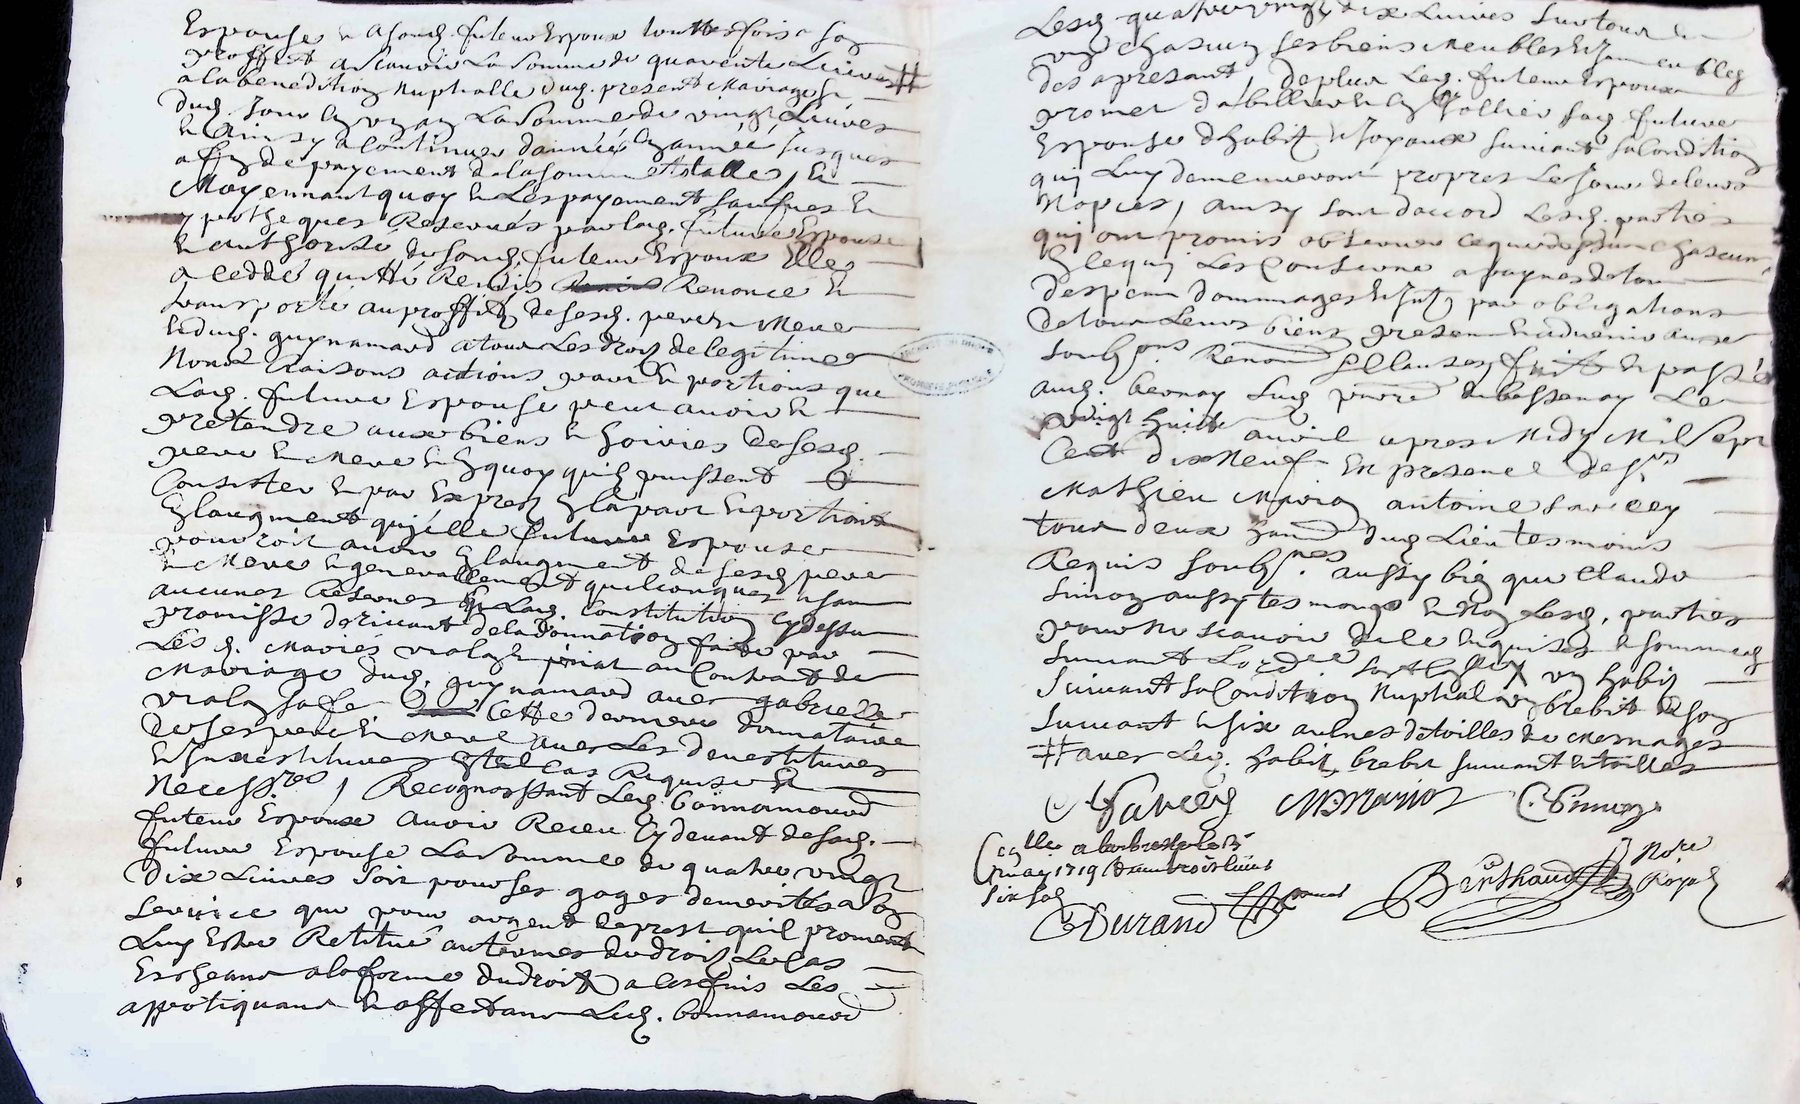 Espouse et a sond. futeur Espoux touttesfois a son
proffit a scauoir La somme de quarente Liures #
a la benedition Nuptialle dud. present Mariage et
dud. Jour en un an La somme de vingt Liures
et ainsy a Continuer dannéé en annéé Jusques
a fin de payement de la somme totalle, et
Moyennant quoy et Les payement saufues et
ypotheques Reserués par lad. future Espouse
et authorisé de sond. futeur Espoux Elle
a ceddé quitté Remis Renonce et
transporté au proffit de sesd. pere et Mere
et dud. guynamard a tous Les droit de legitimes
Noms Raisons actions part et portions que
Lad. future Espouse peut auoir et
pretendre aux biens et hoiries de sesd.
pere et Mere et en quoy quil puissent
Consister et par Exprest en la part et portions
en laugment quj élle future Espouse
pourroit auoir en laugment de sesd. pere
et Mere et generallement quelconques et sans
aucunes Reserues que Lad. Constitution cydessus
promisse deriuant de la donnation faite par
Les d. Mariés vialon et periat au Contrat de
Mariage dud. guynamard auec gabrielle
vialon sa fe Cette derniere donnataire
de ses pere et Mere auec Les deuestitures
et Inuestitures en tel cas Requise et
Necess.res, Recognoissant Led. bonnamourd
futeur Espoux auoir Receu cy deuant de sad.
future Espouse La somme de quatre vingt
dix Liures soit pour ses gages demerittés a son
seruice que pour argent de prest quil promet
Luy Estre Restitué au termes du droit Le Cas
Escheant a la forme du droit a les fins Les
appotiquant et affectant Led. bonnamourd
Lesd. quatre vingt dix Liures sur tous et
un chascun ses biens Meubles et Immeubles
des a presant, de plus Led. futeur Espoux
promet dabillier et en Jollier sad. future
Espouse dhabit et Joyaux suiuant sa Condition
quj Luy demeureront propres Le Jour de leurs
Nopces, ainsy sont daccord Lesd. parties
quj ont promis obseruer ce que dessus chascun
en le quj Les Conserne a paynes de tous
despens dommages et Int. par obligations
de tous Leurs biens present et aduenir aux
soub.ons Renon.on Clauses, fait et passé
aud. bernay sud. parre de bessenay Le
vingt huitt auril apres Midy Mil sept
Cent dix Neuf En presence de s.rs
Mathieu Marion antoine sarcey
tous deux hand dud. Lieu tesmoins
Requis soub.nés aussy bien que Claude
simon aussy tesmoings et Non Lesd. parties
pour Ne scauoir de ce Enquises et sommees
suiuant Lordce un habit
suiuant sa Condition Nuptial un brebit de son
suiuant et six aulnes de toilles de Mesnages
# auec Led. habit, brebit suiuant et toilles
Sarcey M. Marion C. Simon
may 1719
six sols
Durand
Berthaud Notre
Royal